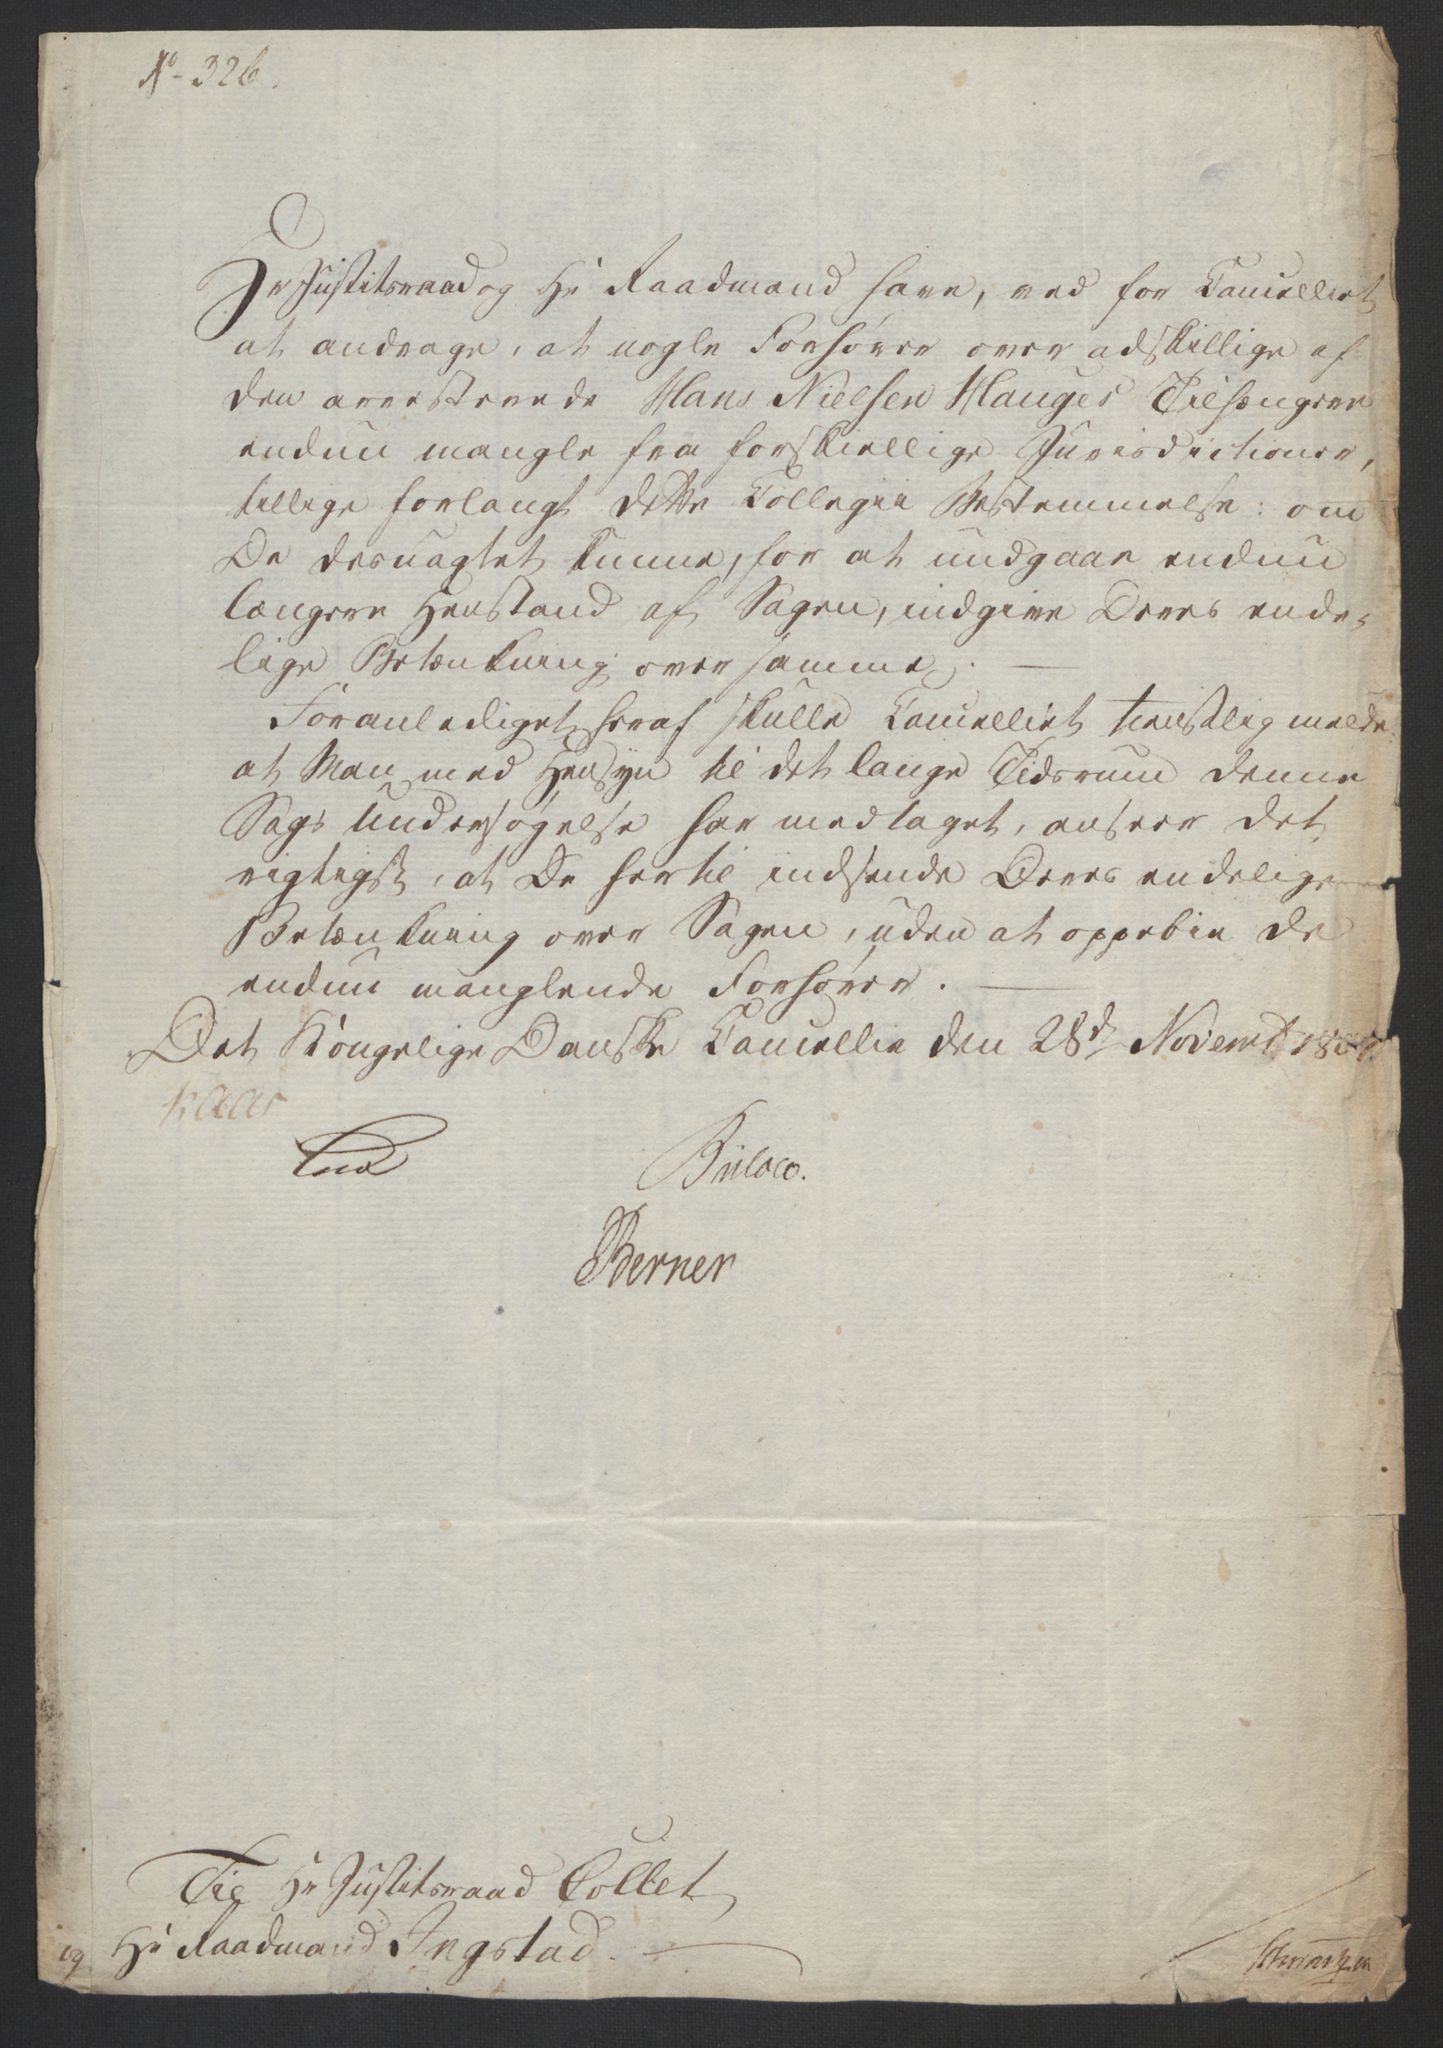 No 326.
Hr Justitsraad og Hr Raadmand have, ved for Cancelliet
at andrage, at nogle Forhører over adskillige af
den arresterede Hans Nielsen Hauges Tilhængere
endnu mangle fra forskiellige Jurisdictioner,
tillige forlangt dette Collegii Bestemmelse: om
De desuagtet kunne, for at undgaae endnu
længere Henstand af Sagen, indgive Deres ende-
lige Betænkning over samme.
Foranlediget heraf skulle Cancelliet tienstlig melde
at Man med Hensyn til det lange Tidsrum denne
Sags Undersøgelse har medtaget, anseer det
rigtigst, at De hertil indsende Deres endelige
Betænkning over Sagen, uden at oppebie de
endnu manglende Forhører.
Det Kongelige Danske Cancellie den 28d Novembr
Kaas
Bülow.
Berner
Til Hr Justitsraad Collet
og Hr Raadmand Ingstad.